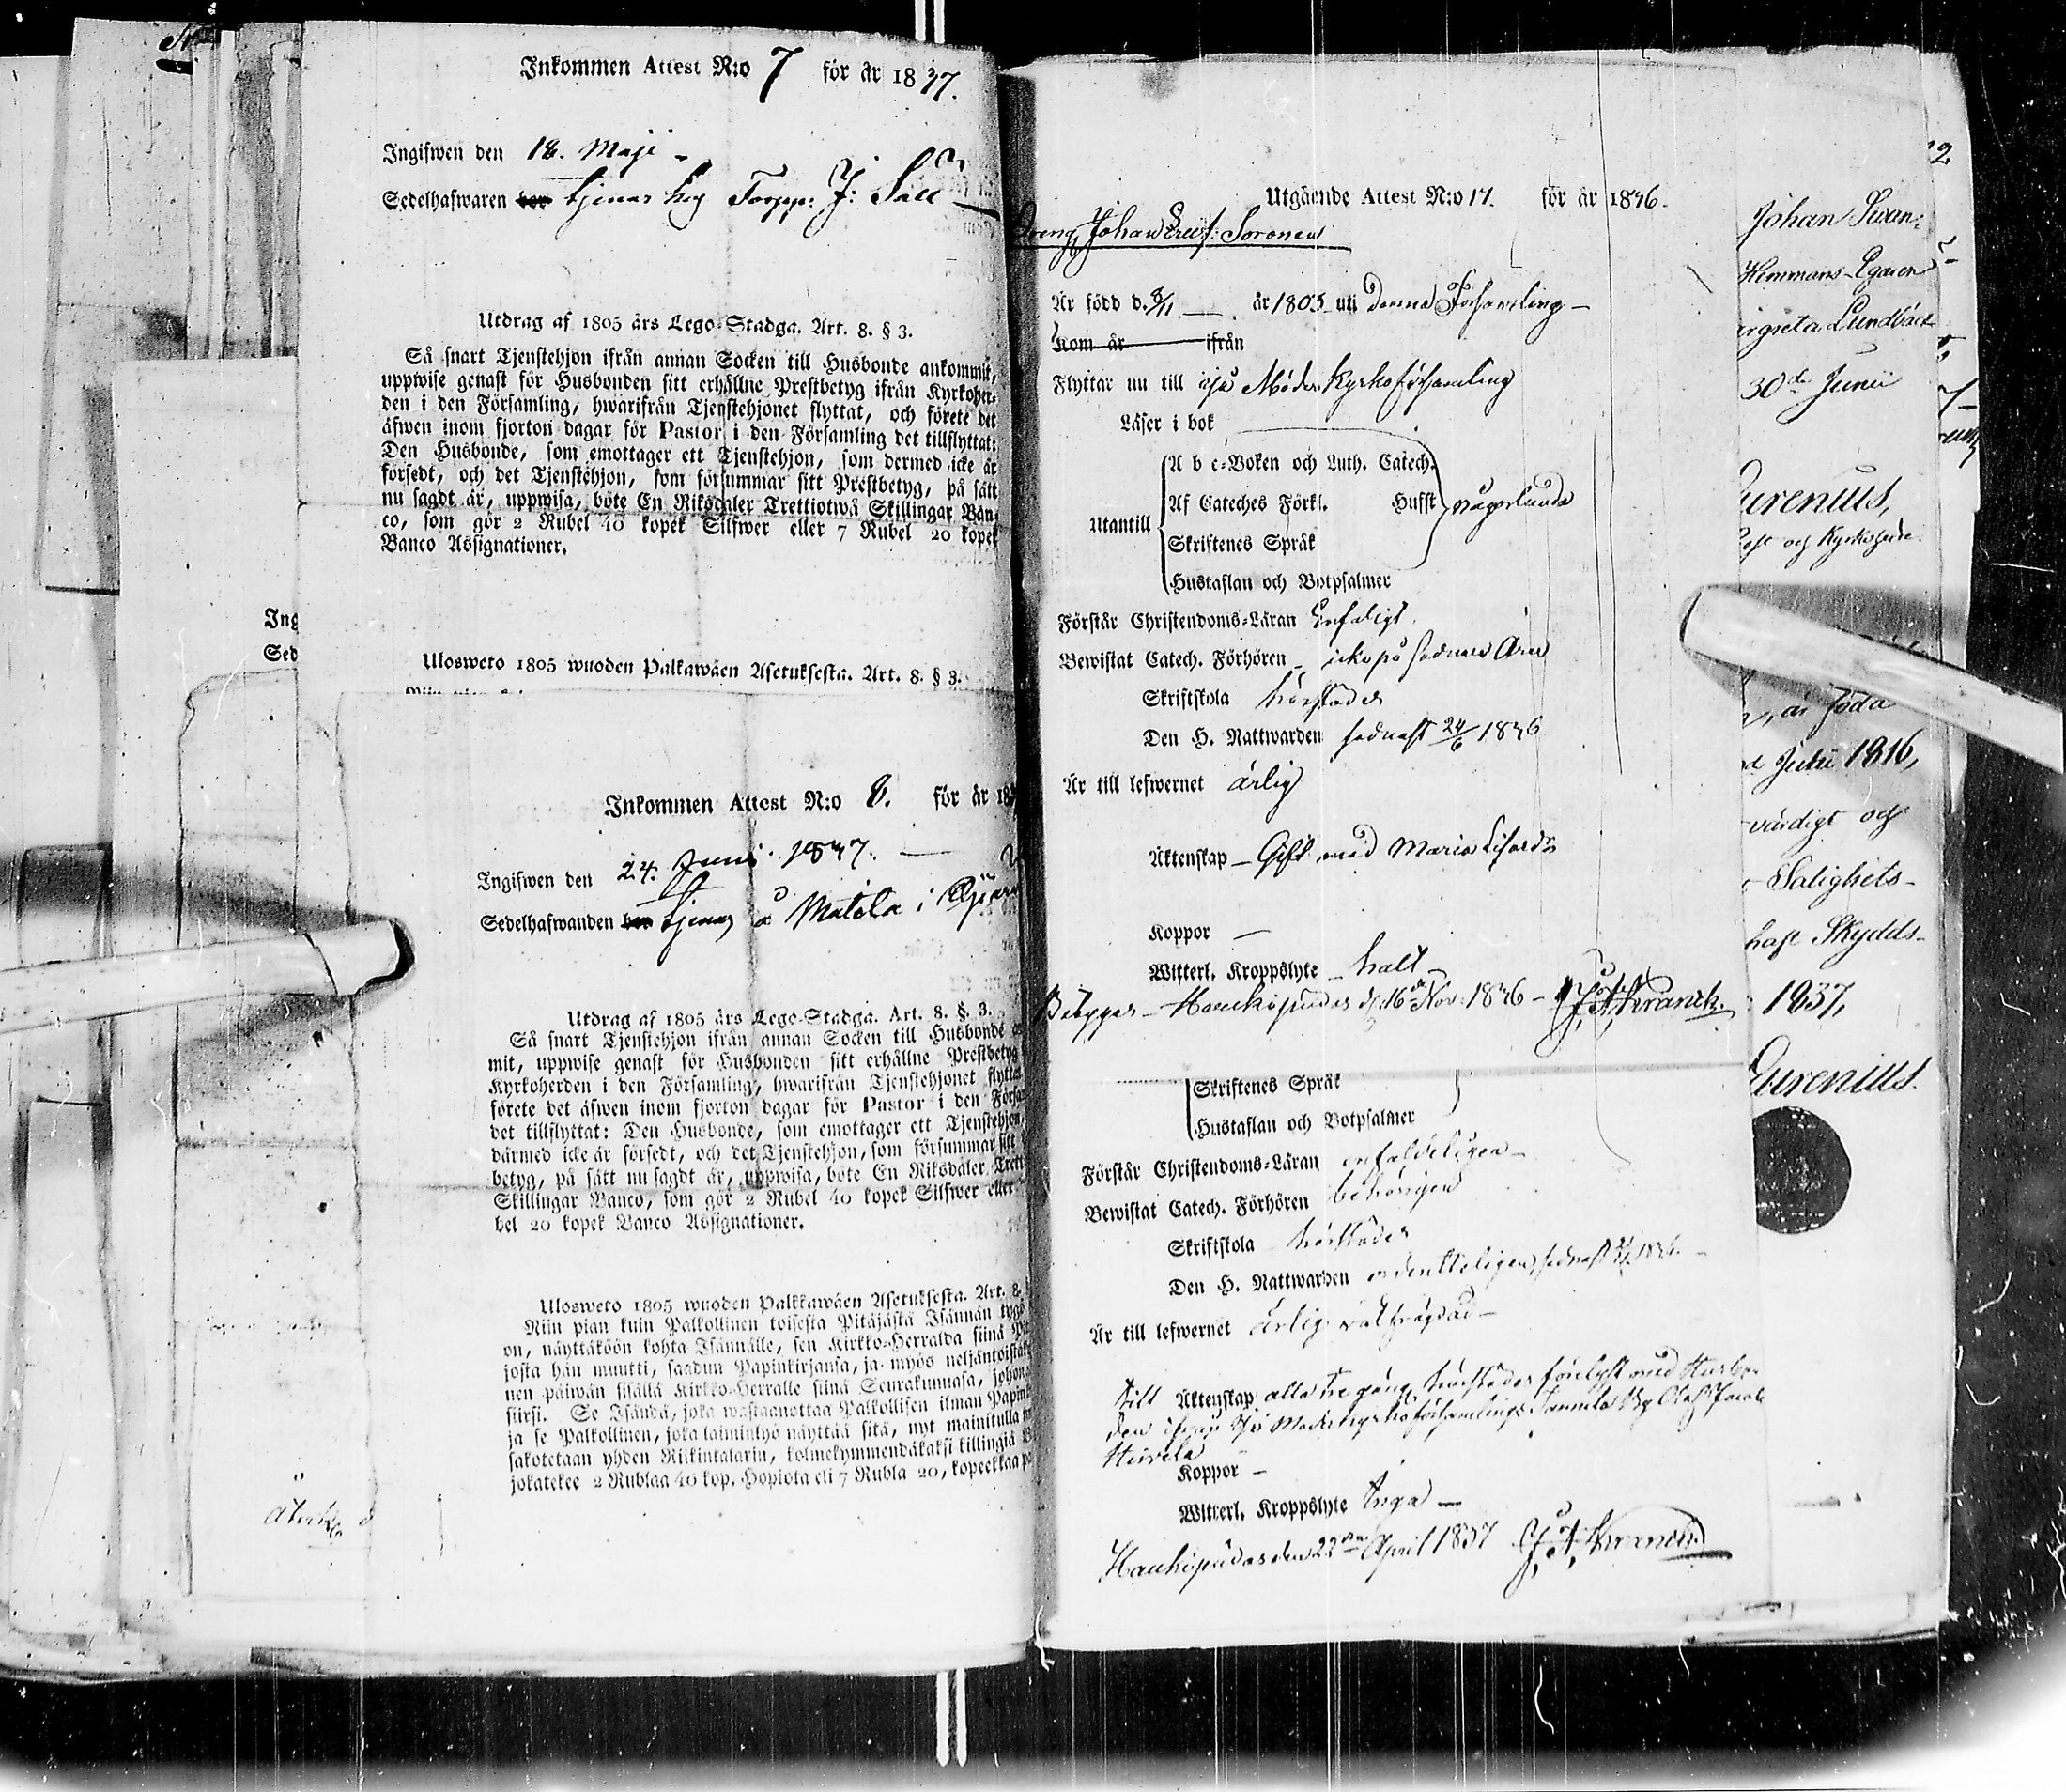 Inkommen Attest N:o 7 för år 1837.
Ingifwen den 18. Maji
Sedelhafwaren bor tjenar hos Torpp: J: Sall
Utdrag af 1805 års Lego-Stadga. Art. 8. § 3.
Så snart Tjenstehjon ifrån annan Socken till Husbonde ankommit,
uppwise genast för Husbonden sitt erhållne Prestbetyg ifrån Kyrkoher-
den i den Församling, hwarifrån Tjenstehjonet flyttat, och förete det
äfwen inom fjorton dagar för Pastor i den Församling det tillflyttat:
Den Husbonde, som emottager ett Tjenstehjon, som dermed icke är
försedt, och det Tjenstehjon, som försummar sitt Prestbetyg, på sätt
nu sagdt är, uppwisa, böte En Riksdaler Trettiotwå Skillingar Ban-
co, som gör 2 Rubel 40 kopek Silfwer eller 7 Rubel 20 kopek
Banco Assignationer.
Ulosweto 1805 wuoden Palkawäen Asetuksesta. Art. 8. § 3.
Ing
Sed
Inkommen Attest N:o 8. för år 18
Ingifwen den 24. Juni 1837.
Sedelhafwanden bor tjenar å Matila i
Utdrag af 1805 års Lego-Stadga. Art. 8. §. 3.
Så snart Tjenstehjon ifrån annan Socken till Husbonde
mit, uppwise genast för Husbonden sitt erhållne Prestbetyg
Kyrkoherden i den Församling, hwarifrån Tjenstehjonet flytta
förete det äfwen inom fjorton dagar för Pastor i den Försa
det tillflyttat: Den Husbonde, som emottager ett Tjenstehjon,
därmed icke är försedt, och det Tjenstehjon, som försummar sitt
betyg, på sätt nu sagdt är, uppwisa, böte En Riksdaler Tret
Skillingar Banco, som gör 2 Rubel 40 kopek Silfwer eller
bel 20 kopek Banco Assignationer.
Ulosweto 1805 wuoden Palkkawäen Asetuksesta. Art. 8.
Niin pian kuin Palkollinen toisesta Pitäjästä Isännän tygö
on, näyttäköön kohta Isännälle, sen Kirkko-Herralda siinä Pi
josta hän muutti, saadun Papinkirjansa, ja myös neljäntoistak
nen päiwän sisällä Kirkko-Herralle siinä Seurakunnasa, johon
siirsi. Se Isändä, joka wastaanottaa Palkollisen ilman Papink
ja se Palkollinen, joka laiminlyö näyttää sitä, nyt mainitulla
sakotetaan yhden Riikintalarin, kolmekymmendäkaksi killingiä B
jokatekee 2 Rublaa 40 kop. Hopiota eli 7 Rubla 20, kopeekkaa p
Utgående Attest N:o 17. för år 1836.
Dreng Johan Ericss: Soronen
Är född d. 8/11 år 1803 uti denna Församling
Kom år ifrån
Flyttar nu till Ijo Moder Kyrkoförsamling
Läser i bok
A b c-Boken och Luth. Catech.
Af Cateches Förkl. Hufst någorlunda
Utantill
Skriftenes Språk
Hustaflan och Botpsalmer
Förstår Christendoms-Läran Enfaldigt.
Bewistat Catech. Förhören icke på sednare Åren
Skriftskola härstädes
Den H. Nattwarden sednast 24/6 1836
Är till lefwernet ärlig
Äktenskap Gift med Maria Lisasdr
Koppor
Witterl. Kroppslyte halt
Betygar Haukipudas d. 16de Nov: 1836 J. A. Kranck.
Skriftenes Språk
Hustaflan och Botpsalmer
Förstår Christendoms-Läran enfaldeligen
Bewistat Catech. Förhören behörigen
Skriftskola härstädes
Den H. Nattwarden ordenteligen, sednast 1836.
Är till lefwernet ärlig wälfrägdad
till Äktenskap alla tre gång. härstädes förelyst med
den ifrån Ijo Moderkyrkoförsamlings Olof Jacob
Koppor
Witterl. Kroppslyte Inga
Haukipudas den 22dra April 1837 J. A. Kranck.
2
Johan Swan-
Hemmans-Egaren
rgreta Lundbäck
30de Junii
urenius,
och Kyrkoherde.
är född
d Julii 1816,
värdigt och
Salighets-
haft Skydds-
1837,
Eurenius.